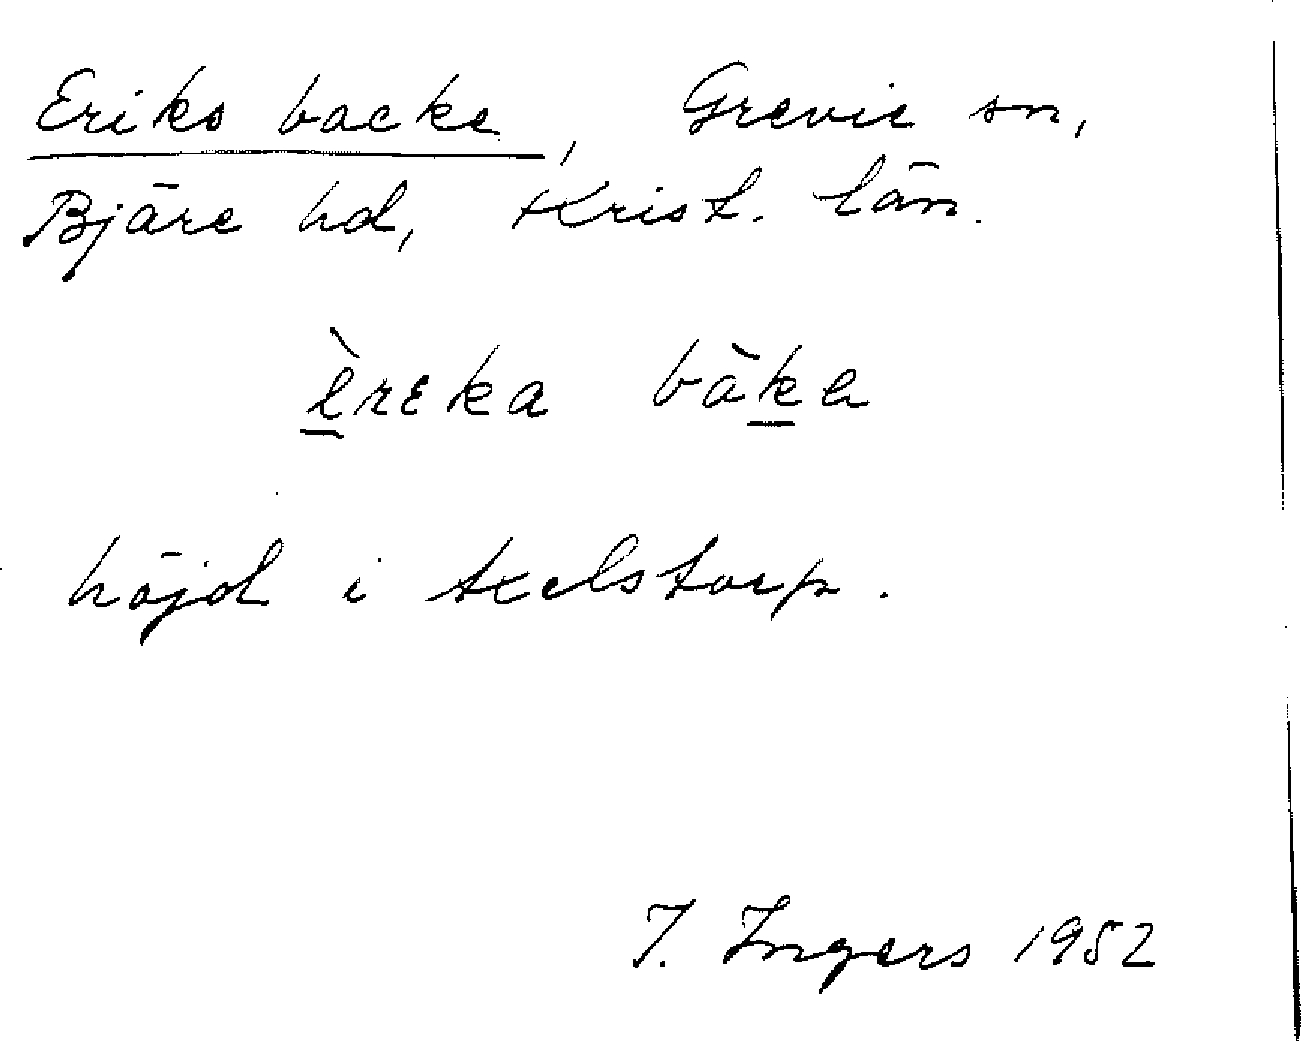 Eriks backe, Grevie sn,
Bjäre hd, Krist. län.
èrɛka bàka
höjd i Axelstorp.
I. Ingers 1952